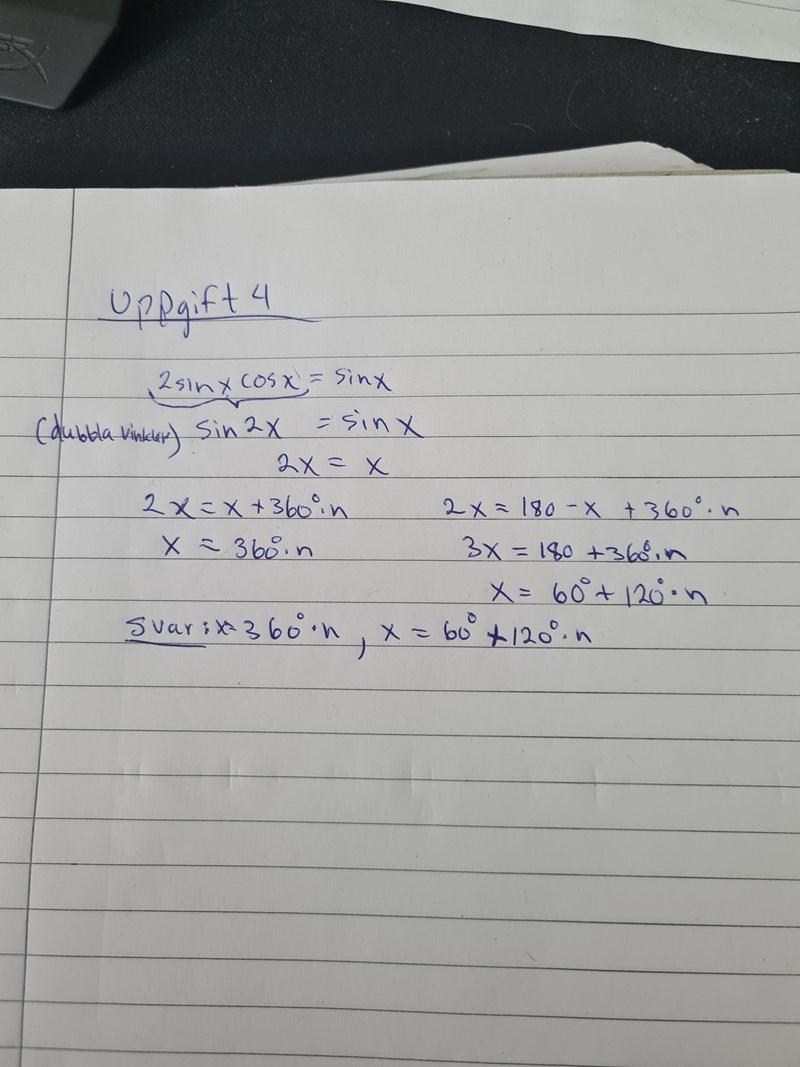 Uppgift 4
2sinx cosx = sinx
(dubbla vinklar) sin2x = sinx
2x = x
2x = x + 360°·n 2x = 180 - x + 360°·n
x = 360°·n 3x = 180 + 360°·n
x = 60° + 120°·n
Svar: x= 360°·n, x = 60° + 120°·n